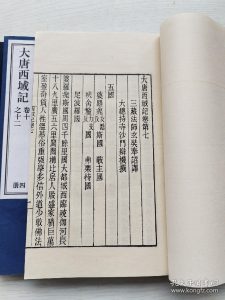 大唐西域記卷第七
三藏法師玄奘奉詔譯
大總持寺沙門辯機撰
五國
婆羅痆斯國 戰主國
吠舍釐國 弗栗恃國
尼波羅國
婆羅痆斯國周四千餘里國大都城西臨殑伽河長
十八九里廣五六里閭閻櫛比居人殷盛家積巨萬
室盈奇貨人性溫恭俗重強學多信外道少敬佛法
大唐西域記
卷十
之十二
四冊